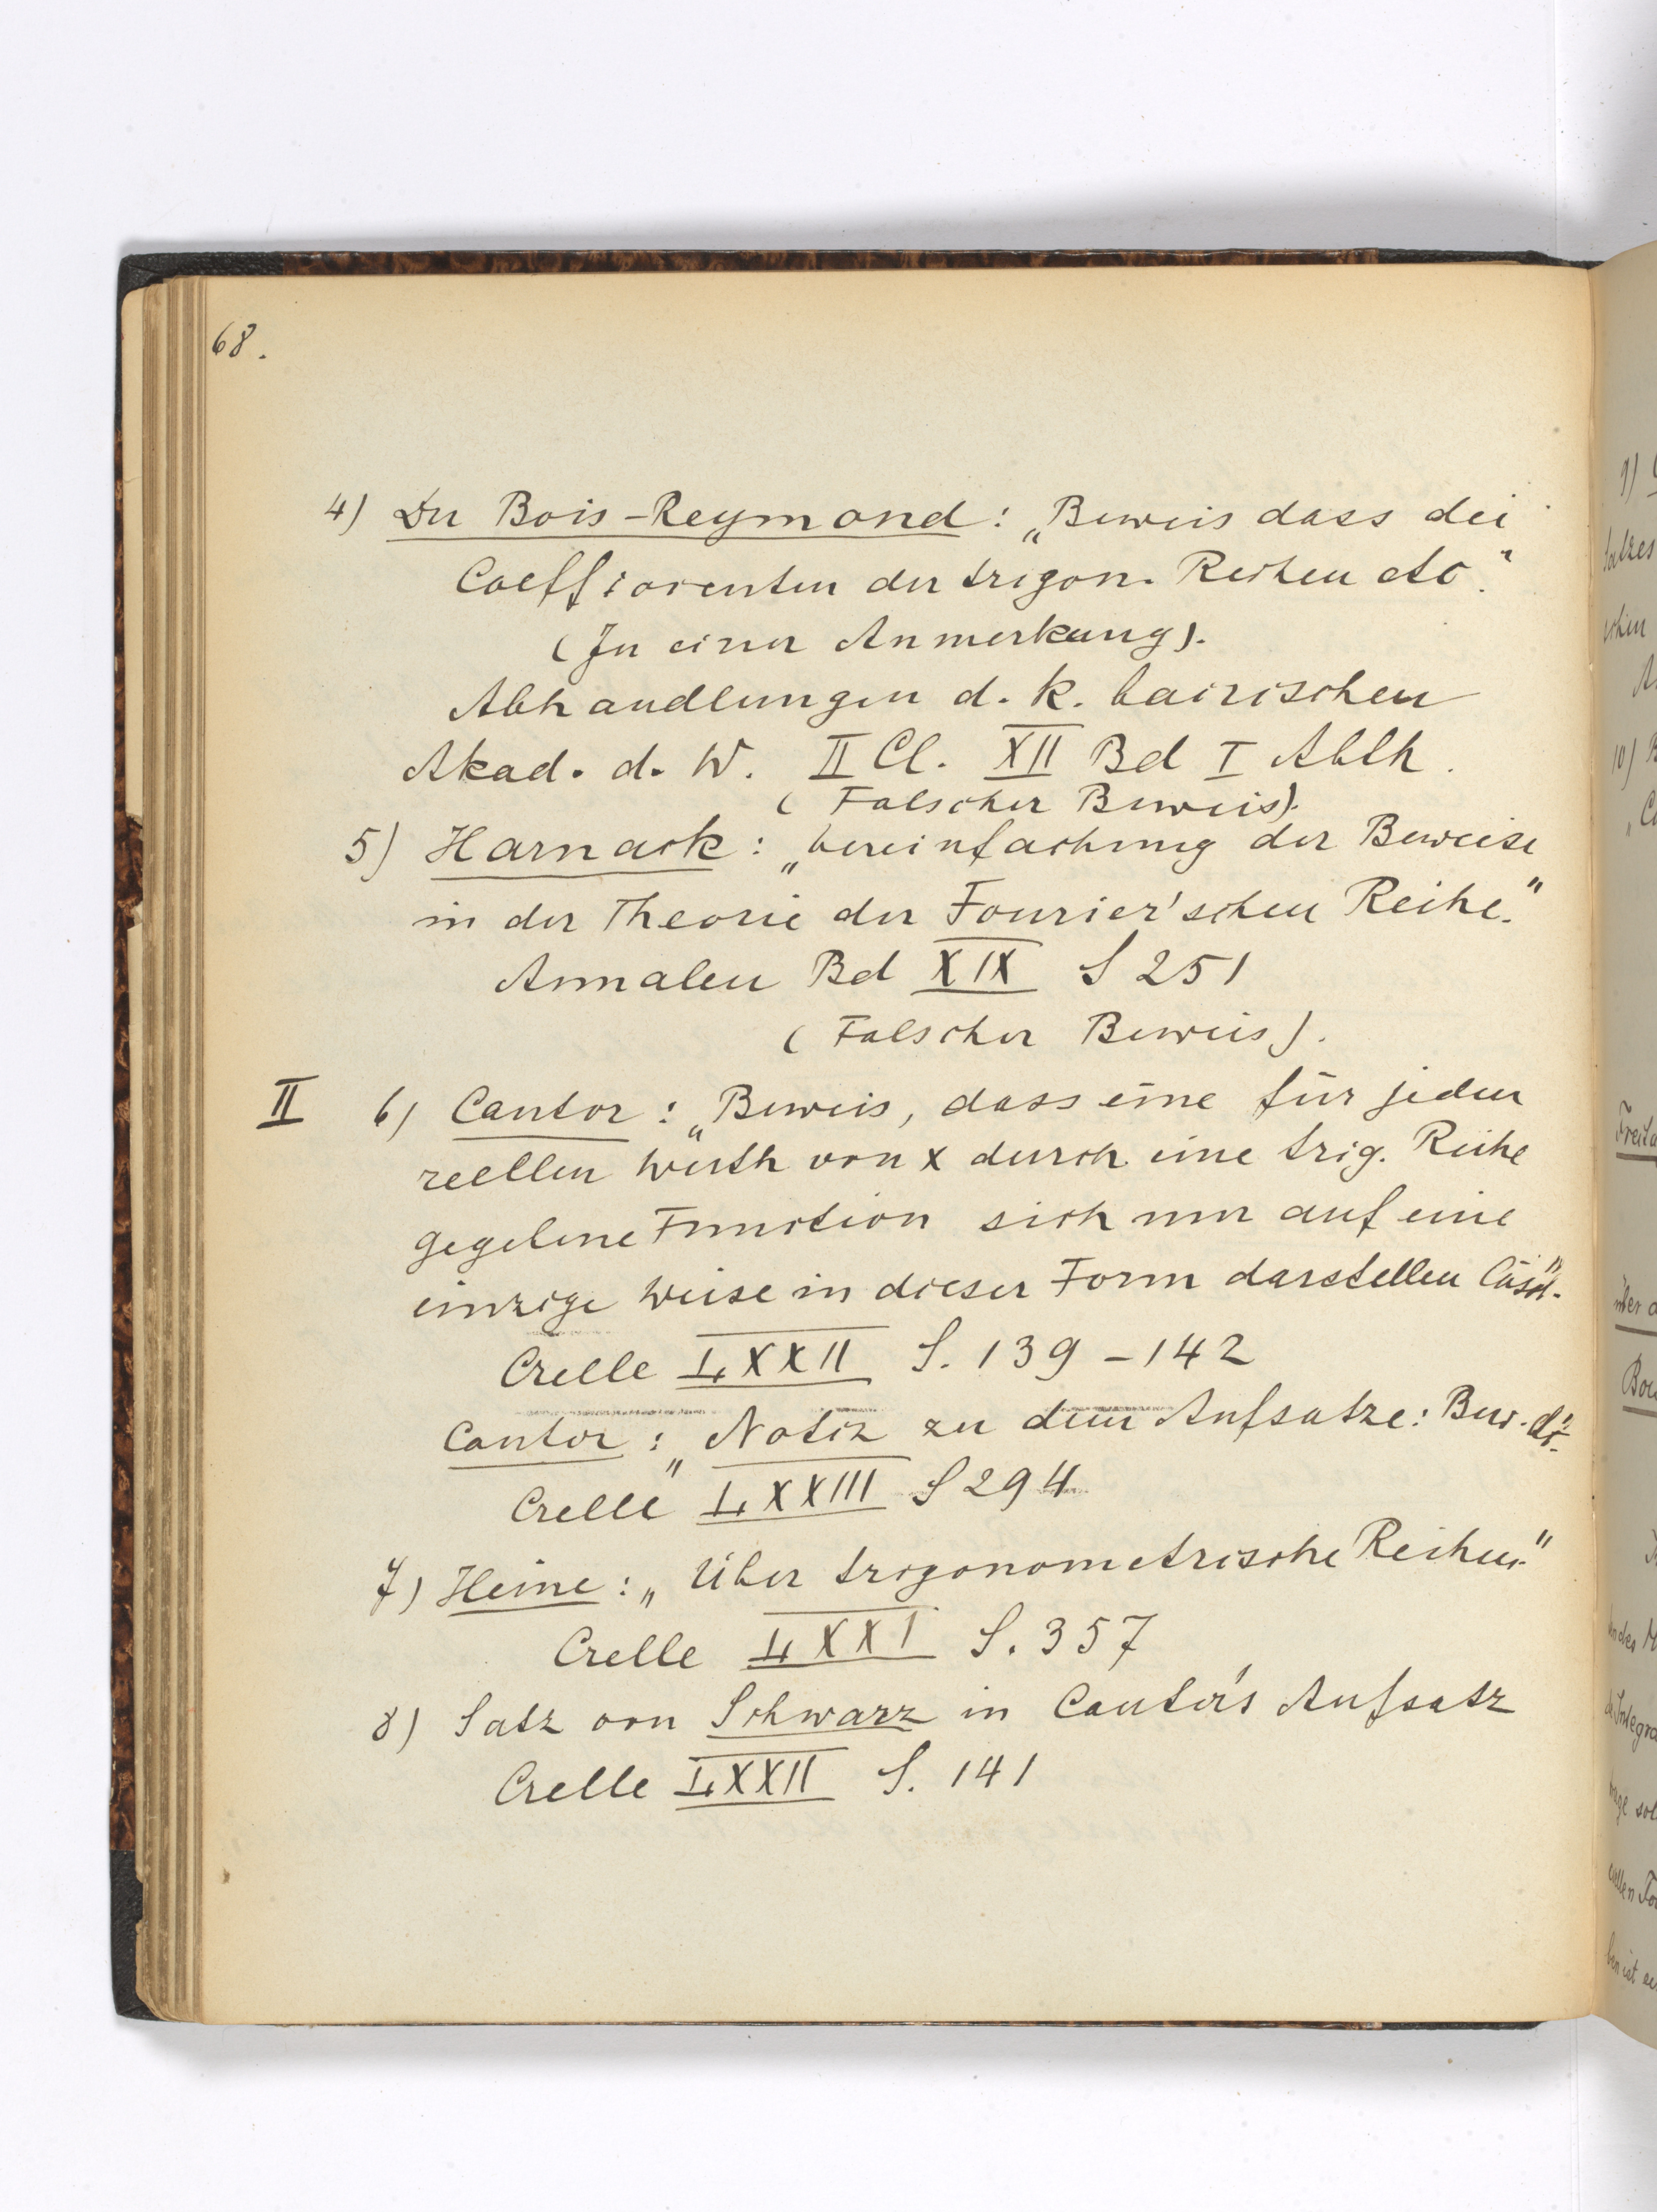 68.
4) Du Bois-Reymond: „Beweis dass die
Coefficienten der trigon. Reihen etc."
(In einer Anmerkung).
Abhandlungen d. k. bairischen
Akad. d. W. II Cl. XII Bd I Abth.
(Falscher Beweis).
5) Harnack: „Vereinfachung der Beweise
in der Theorie der Fourier'schen Reihe."
Annalen Bd XIX S 251
(Falscher Beweis).
II 6) Cantor: „Beweis, dass eine für jeden
reellen Werth von x durch eine trig. Reihe
gegebene Function sich nur auf eine
einzige Weise in dieser Form darstellen lässt."
Crelle LXXII S. 139-142
Cantor: „Notiz zu dem Aufsatze: Bew.
Crelle LXXIII S 294
7) Heine: „Über trigonometrische Reihen."
Crelle LXXI S. 357
8) Satz von Schwarz in Cantor's Aufsatz
Crelle LXXII S. 141